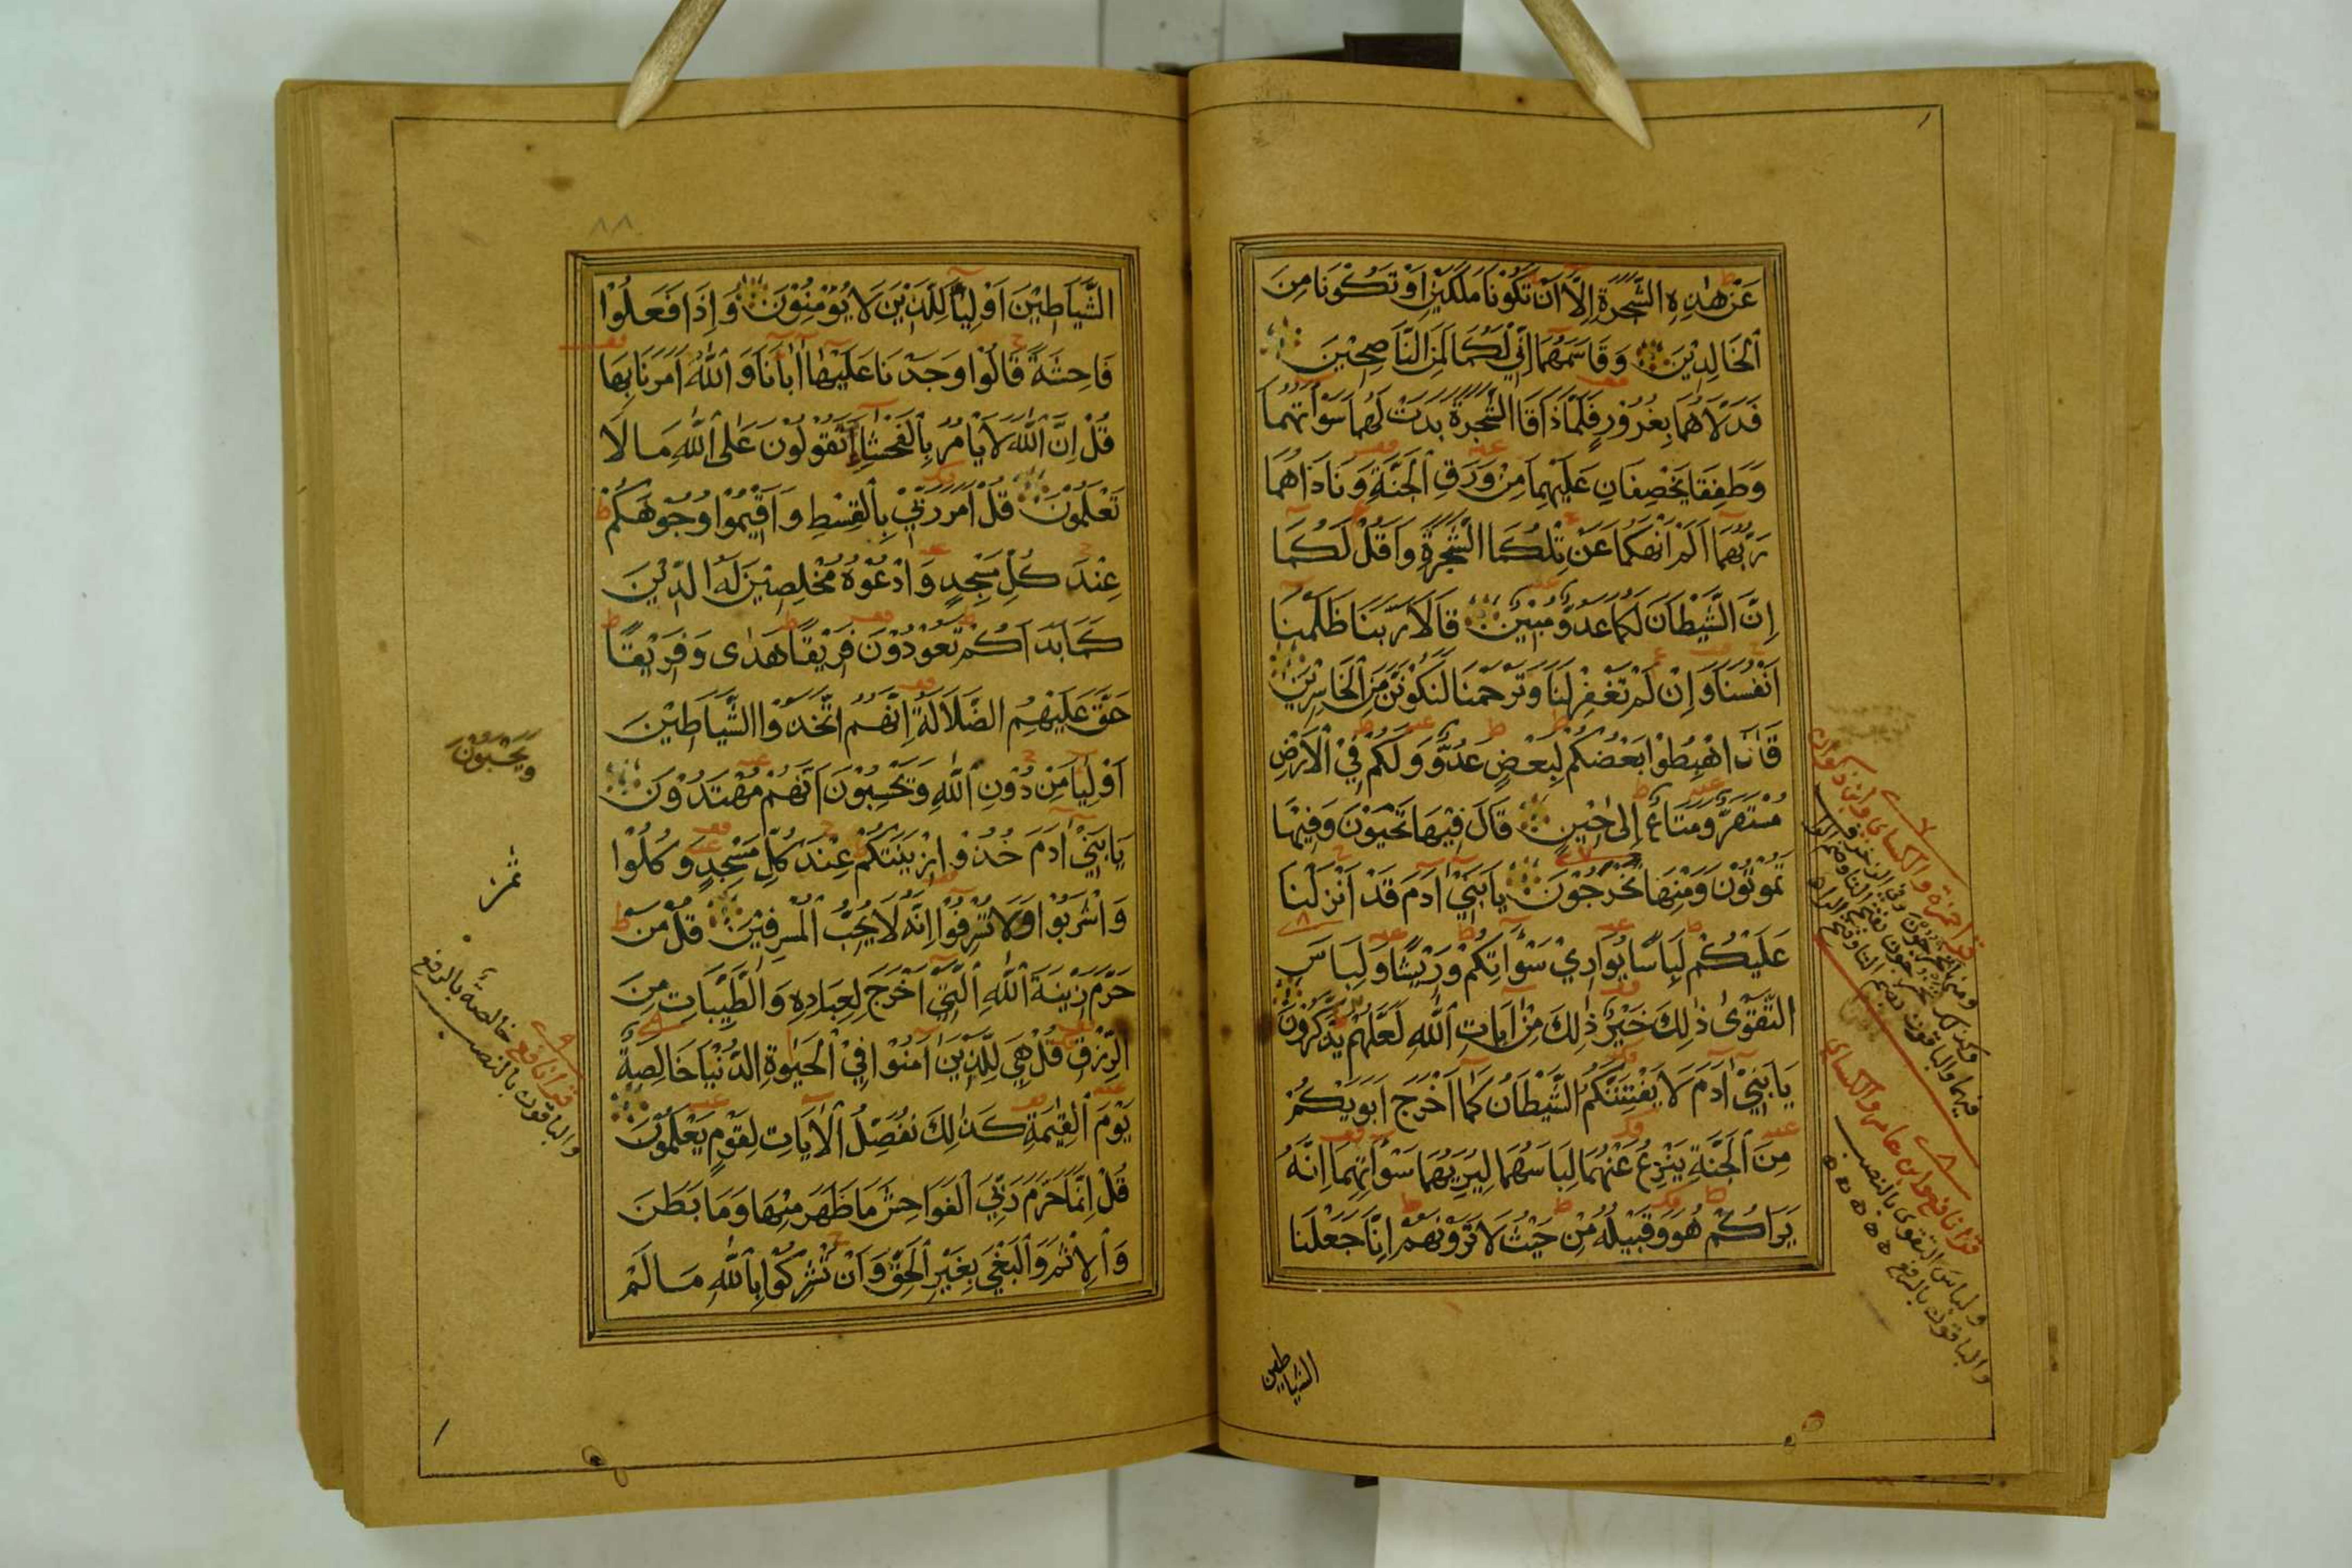 عَنْ هٰذِهِ الشَّجَرَةِ اِلَّا اَنْ تَكُوْنَا مَلَكَيْنِ اَوْ تَكُوْنَا مِنَ
الْخَالِدِيْنَ وَقَاسَمَهُمَا اِنِّيْ لَكُمَا لَمِنَ النَّاصِحِيْنَ
فَدَلَّاهُمَا بِغُرُوْرٍ فَلَمَّا ذَاقَا الشَّجَرَةَ بَدَتْ لَهُمَا سَوْاٰتُهُمَا
وَطَفِقَا يَخْصِفَانِ عَلَيْهِمَا مِنْ وَرَقِ الْجَنَّةِ وَنَادَاهُمَا
رَبُّهُمَا اَلَمْ اَنْهَكُمَا عَنْ تِلْكُمَا الشَّجَرَةِ وَاَقُلْ لَكُمَا
اِنَّ الشَّيْطَانَ لَكُمَا عَدُوٌّ مُبِيْنٌ قَالَا رَبَّنَا ظَلَمْنَا
اَنْفُسَنَا وَاِنْ لَمْ تَغْفِرْ لَنَا وَتَرْحَمْنَا لَنَكُوْنَنَّ مِنَ الْخَاسِرِيْنَ
قَالَ اهْبِطُوْا بَعْضُكُمْ لِبَعْضٍ عَدُوٌّ وَلَكُمْ فِي الْاَرْضِ
مُسْتَقَرٌّ وَمَتَاعٌ اِلٰى حِيْنٍ قَالَ فِيْهَا تَحْيَوْنَ وَفِيْهَا
تَمُوْتُوْنَ وَمِنْهَا تُخْرَجُوْنَ يَا بَنِيْ اٰدَمَ قَدْ اَنْزَلْنَا
عَلَيْكُمْ لِبَاسًا يُوَارِيْ سَوْاٰتِكُمْ وَرِيْشًا وَلِبَاسَ
التَّقْوٰى ذٰلِكَ خَيْرٌ ذٰلِكَ مِنْ اٰيَاتِ اللّٰهِ لَعَلَّهُمْ يَذَّكَّرُوْنَ
يَا بَنِيْ اٰدَمَ لَا يَفْتِنَنَّكُمُ الشَّيْطَانُ كَمَا اَخْرَجَ اَبَوَيْكُمْ
مِنَ الْجَنَّةِ يَنْزِعُ عَنْهُمَا لِبَاسَهُمَا لِيُرِيَهُمَا سَوْاٰتِهِمَا اِنَّهُ
يَرَاكُمْ هُوَ وَقَبِيْلُهُ مِنْ حَيْثُ لَا تَرَوْنَهُمْ اِنَّا جَعَلْنَا
الشياطين
قرا حمزة والكسائي وابن ذكوان
ومنها تخرجون وفي الزخرف
وكذلك تخرجون بفتح التا وضم الرا
فيهما والباقون بضم التا وفتح الرا
قرا نافع وابن عامر والكسائي
ولباسَ التقوى بالنصب
والباقون بالرفع
٨٨
الشَّيَاطِيْنَ اَوْلِيَاءَ لِلَّذِيْنَ لَا يُؤْمِنُوْنَ وَاِذَا فَعَلُوْا
فَاحِشَةً قَالُوْا وَجَدْنَا عَلَيْهَا اٰبَاءَنَا وَاللّٰهُ اَمَرَنَا بِهَا
قُلْ اِنَّ اللّٰهَ لَا يَاْمُرُ بِالْفَحْشَاءِ اَتَقُوْلُوْنَ عَلَى اللّٰهِ مَا لَا
تَعْلَمُوْنَ قُلْ اَمَرَ رَبِّيْ بِالْقِسْطِ وَاَقِيْمُوْا وُجُوْهَكُمْ
عِنْدَ كُلِّ مَسْجِدٍ وَادْعُوْهُ مُخْلِصِيْنَ لَهُ الدِّيْنَ
كَمَا بَدَاَكُمْ تَعُوْدُوْنَ فَرِيْقًا هَدٰى وَفَرِيْقًا
حَقَّ عَلَيْهِمُ الضَّلَالَةُ اِنَّهُمُ اتَّخَذُوا الشَّيَاطِيْنَ
اَوْلِيَاءَ مِنْ دُوْنِ اللّٰهِ وَيَحْسَبُوْنَ اَنَّهُمْ مُهْتَدُوْنَ
يَا بَنِيْ اٰدَمَ خُذُوْا زِيْنَتَكُمْ عِنْدَ كُلِّ مَسْجِدٍ وَكُلُوْا
وَاشْرَبُوْا وَلَا تُسْرِفُوْا اِنَّهُ لَا يُحِبُّ الْمُسْرِفِيْنَ قُلْ مَنْ
حَرَّمَ زِيْنَةَ اللّٰهِ الَّتِيْ اَخْرَجَ لِعِبَادِهِ وَالطَّيِّبَاتِ مِنَ
الرِّزْقِ قُلْ هِيَ لِلَّذِيْنَ اٰمَنُوْا فِي الْحَيٰوةِ الدُّنْيَا خَالِصَةً
يَوْمَ الْقِيٰمَةِ كَذٰلِكَ نُفَصِّلُ الْاٰيَاتِ لِقَوْمٍ يَعْلَمُوْنَ
قُلْ اِنَّمَا حَرَّمَ رَبِّيَ الْفَوَاحِشَ مَا ظَهَرَ مِنْهَا وَمَا بَطَنَ
وَالْاِثْمَ وَالْبَغْيَ بِغَيْرِ الْحَقِّ وَاَنْ تُشْرِكُوْا بِاللّٰهِ مَا لَمْ
ويحسبون
قرا نافع خالصةٌ بالرفع
والباقون بالنصب